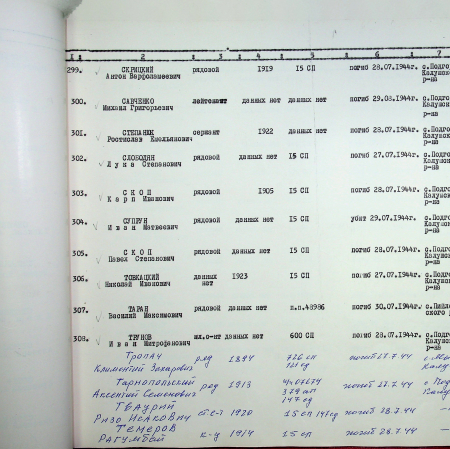 1 2 3 4 5 6 7
299. СКРИЦКИЙ рядовой 1919 15 СП погиб 28.07.1944г. с.Подго
Антон Варфоломеевич Калушск р-на
300. САВЧЕНКО лейтенант данных нет данных нет погиб 29.08.1944г. с.Подго
Михаил Григорьевич Калушск р-на
301. СТЕПАНЮК сержант 1922 данных нет погиб 28.07.1944г. с.Подго
Ростислав Емельянович Калушск р-на
302. СЛОБОДЯН рядовой данных нет 15 СП погиб 27.07.1944г. с.Подго
Лука Степанович Калушск р-на
303. СКОП рядовой 1905 15 СП погиб 28.07.1944г. с.Подго
Карп Иванович Калушск р-на
304. СУПРУН рядовой данных нет 15 СП убит 29.07.1944г. с.Подго
Иван Матвеевич Калушск р-на
305. СКОП рядовой данных нет 15 СП погиб 28.07.1944г. с.Подго
Павел Степанович Калушск р-на
306. ТОВКАЦКИЙ данных нет 1923 15 СП погиб 27.07.1944г. с.Подго
Николай Иванович Калушск р-на
307. ТАРАН рядовой данных нет п.п.48986 погиб 30.07.1944г.
Василий Максимович ского р
308. ТРУНОВ мл.с-нт данных нет 600 СП погиб 28.07.1944г. с.Подго
Иван Митрофанович Калушск р-на
Тропач ряд 1894 726 сп погиб 27.7.44
Климентий Захарович
Тарнопольский ряд 1913 погиб 27.7.44
Аксентий Семенович 147 сд
Гваурий ст с-т 1920 15 сп 147 сд погиб 28.7.44
Ризо Исакович
Темеров к-ц 1914 15 сп погиб 28.7.44
Рагумбай